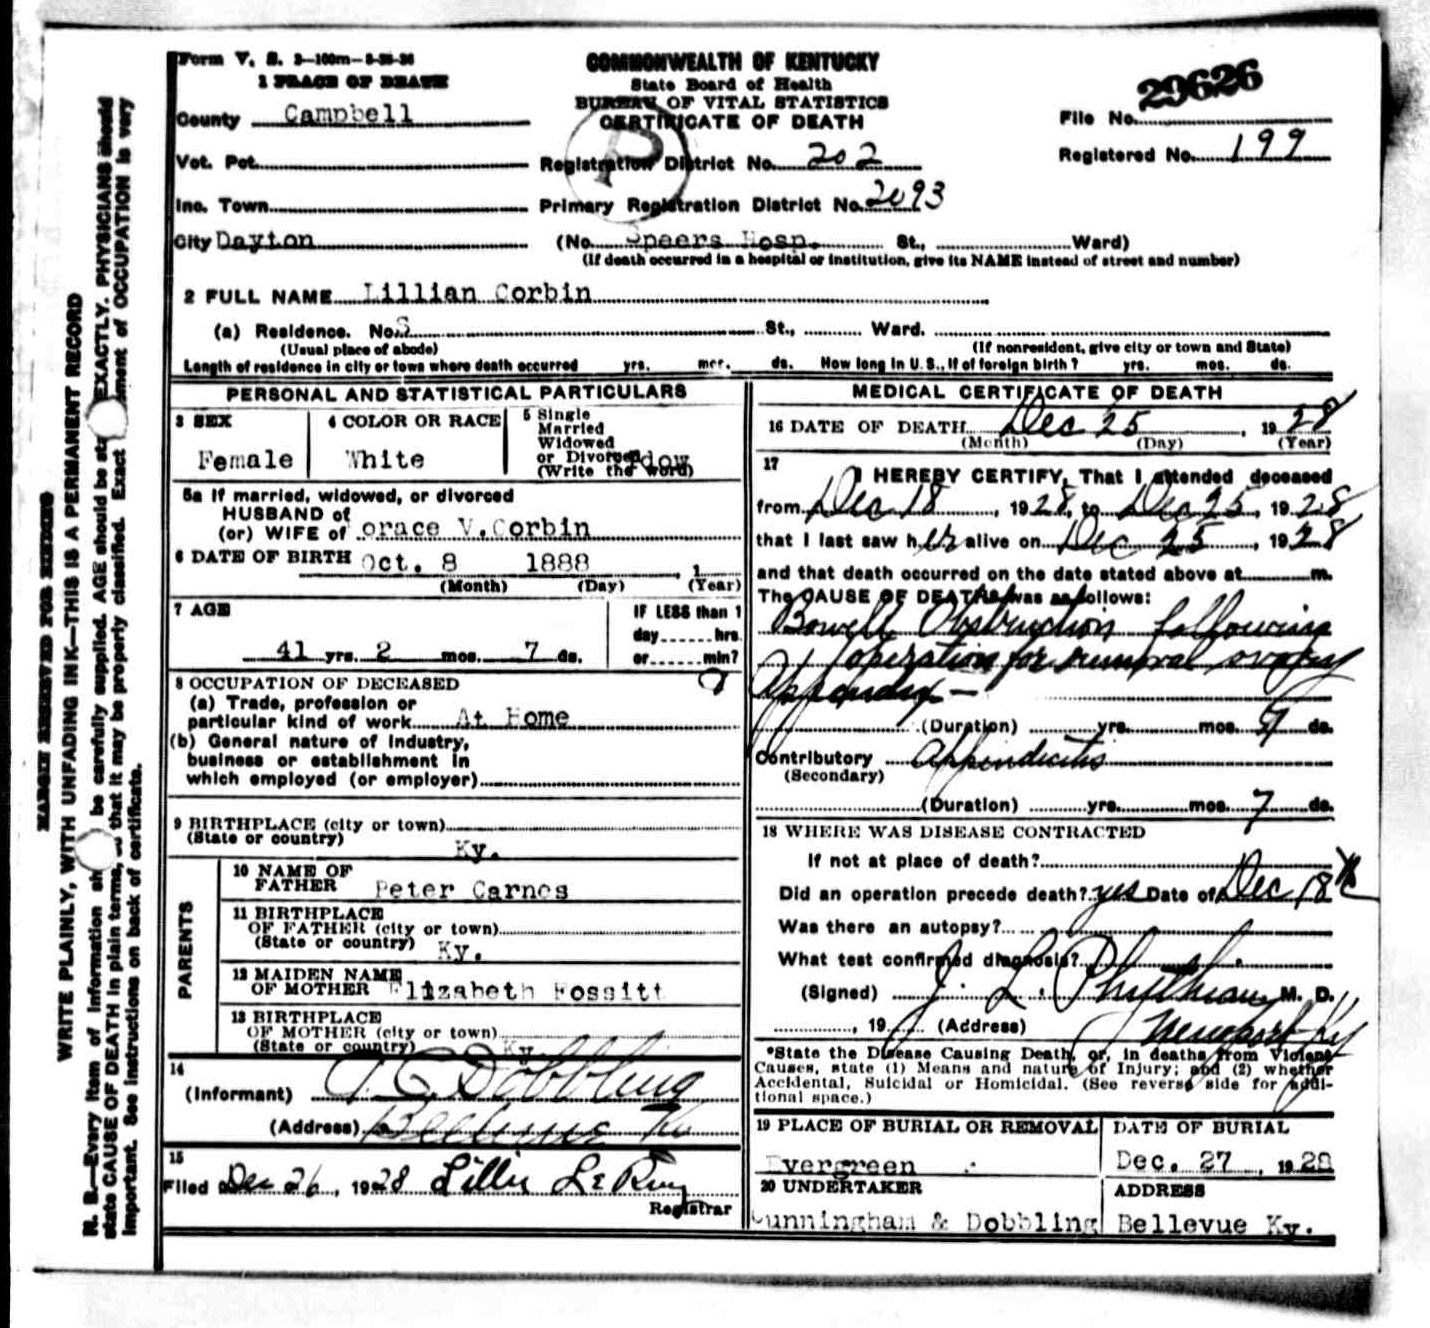 Form V. S. 3—100m—8-28-26
1 PLACE OF DEATH
County Campbell
Vot. Pct.
Inc. Town
City Dayton
COMMONWEALTH OF KENTUCKY
State Board of Health
BUREAU OF VITAL STATISTICS
CERTIFICATE OF DEATH
Registration District No. 202
Primary Registration District No. 2093
(No. Speers Hosp. St., Ward)
(If death occurred in a hospital or institution, give its NAME instead of street and number)
File No. 29626
Registered No. 199
2 FULL NAME Lillian Corbin
(a) Residence. No. S St., Ward.
(Usual place of abode) (If nonresident, give city or town and State)
Length of residence in city or town where death occurred yrs. mos. ds. How long in U.S., if of foreign birth? yrs. mos. ds.
PERSONAL AND STATISTICAL PARTICULARS
3 SEX
Female
4 COLOR OR RACE
White
5 Single
Married
Widowed
or Divorced
(Write the word)
dow
5a If married, widowed, or divorced
HUSBAND of
(or) WIFE of orace V.Corbin
6 DATE OF BIRTH Oct. 8 1888 , 1
(Month) (Day) (Year)
7 AGE
41 yrs. 2 mos. 7 ds.
IF LESS than 1
day hrs
or min?
8 OCCUPATION OF DECEASED
(a) Trade, profession or
particular kind of work At Home
(b) General nature of Industry,
business or establishment in
which employed (or employer)
9 BIRTHPLACE (city or town)
(State or country)
Ky.
PARENTS
10 NAME OF
FATHER Peter Carnes
11 BIRTHPLACE
OF FATHER (city or town)
(State or country) Ky.
12 MAIDEN NAME
OF MOTHER Elizabeth Fossitt
13 BIRTHPLACE
OF MOTHER (city or town)
(State or country) Ky
14
(Informant) Dobbling
(Address) Bellevue Ky
15
Filed Dec 26, 1928 Lillie
Registrar
MEDICAL CERTIFICATE OF DEATH
16 DATE OF DEATH Dec 25, 1928
(Month) (Day) (Year)
17
I HEREBY CERTIFY, That I attended deceased
from Dec 18, 1928, to Dec 25, 1928
that I last saw her alive on Dec 25, 1928
and that death occurred on the date stated above at m.
The CAUSE OF DEATH* was as follows:
Bowell Obstruction following
operation for removal ovary
Appendix —
(Duration) yrs. mos. 7 ds.
Contributory Appendicitis
(Secondary)
(Duration) yrs. mos. 7 ds.
18 WHERE WAS DISEASE CONTRACTED
If not at place of death?
Did an operation precede death? yes Date of Dec 18th
Was there an autopsy?
What test confirmed diagnosis?
(Signed) J. L. Phythian, M. D.
, 19 (Address) Newport Ky
*State the Disease Causing Death, or, in deaths from Violent
Causes, state (1) Means and nature of Injury; and (2) whether
Accidental, Suicidal or Homicidal. (See reverse side for addi-
tional space.)
19 PLACE OF BURIAL OR REMOVAL
Evergreen
DATE OF BURIAL
Dec. 27, 1928
20 UNDERTAKER
Cunningham & Dobbling
ADDRESS
Bellevue Ky.
MARGIN RESERVED FOR BINDING
WRITE PLAINLY, WITH UNFADING INK—THIS IS A PERMANENT RECORD
N. B.—Every item of information sh be carefully supplied. AGE should be sta EXACTLY. PHYSICIANS should
state CAUSE OF DEATH in plain terms, so that it may be properly classified. Exact ment of OCCUPATION is very
important. See instructions on back of certificate.